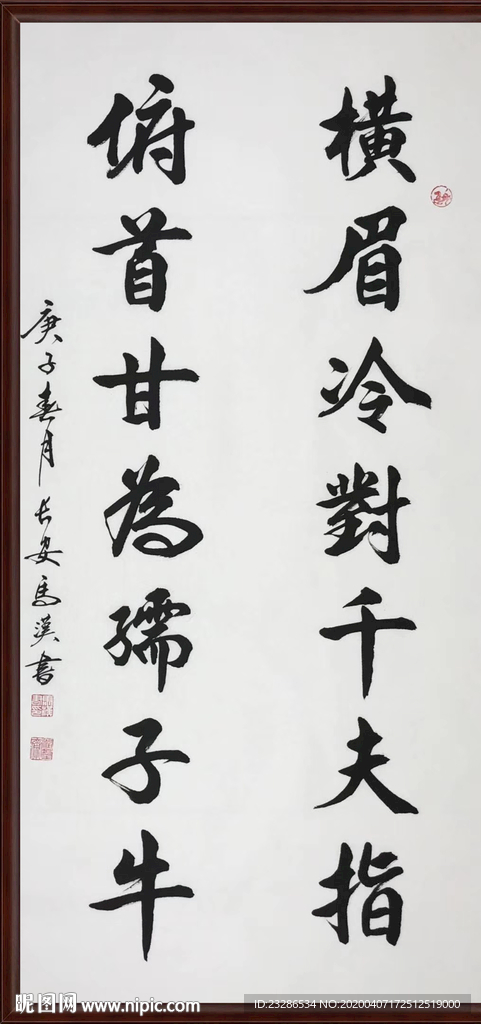 橫眉冷對千夫指
俯首甘為孺子牛
庚子春月長安馬漢書
昵图网 www.nipic.com
ID:23286534 NO:20200407172512519000